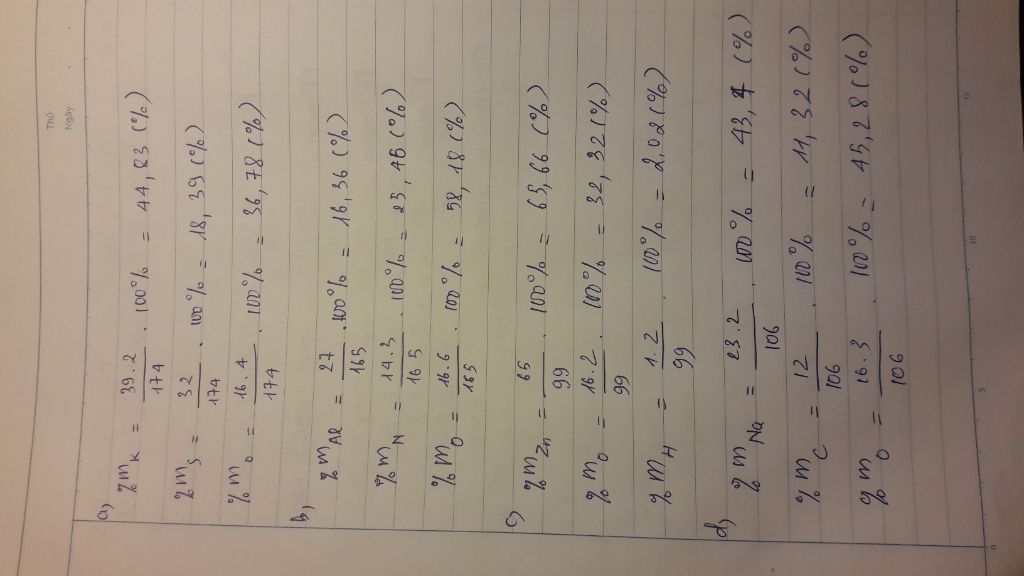 Thứ
Ngày
a)
%mK = 39.2/174 . 100% = 44,83 (%)
%mS = 32/174 . 100% = 18,39 (%)
%mO = 16.4/174 . 100% = 36,78 (%)
b)
%mAl = 27/165 . 100% = 16,36 (%)
%mN = 14.3/165 . 100% = 25,46 (%)
%mO = 16.6/165 . 100% = 58,18 (%)
c)
%mZn = 65/99 . 100% = 65,66 (%)
%mO = 16.2/99 . 100% = 32,32 (%)
%mH = 1.2/99 . 100% = 2,02 (%)
d)
%mNa = 23.2/106 . 100% = 43,4 (%)
%mC = 12/106 . 100% = 11,32 (%)
%mO = 16.3/106 . 100% = 45,28 (%)
0
5
10
15